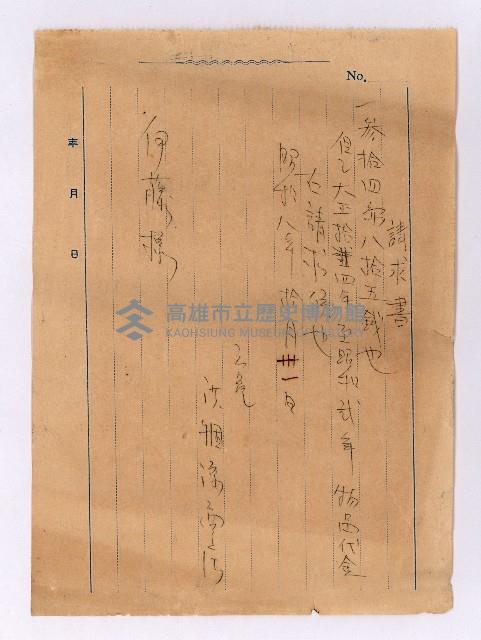 No.
請求書
一 参拾四円八拾五銭也
但シ大正拾四年至昭和弐年 物品代金
右請求候也
昭和八年拾月卅一日
伊藤様
年 月 日
高雄市立歷史博物館
KAOHSIUNG MUSEUM OF HISTORY